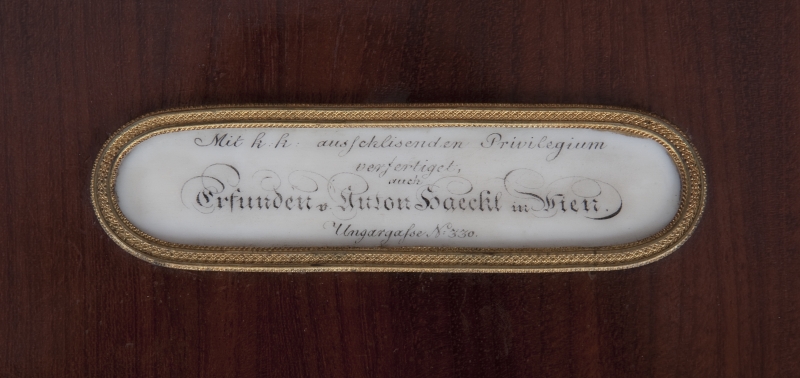 Mit k. k: ausschlisenden Privilegium
verfertiget,
auch
Erfunden v. Anton Haeckl in Wien.
Ungargasse No 330.